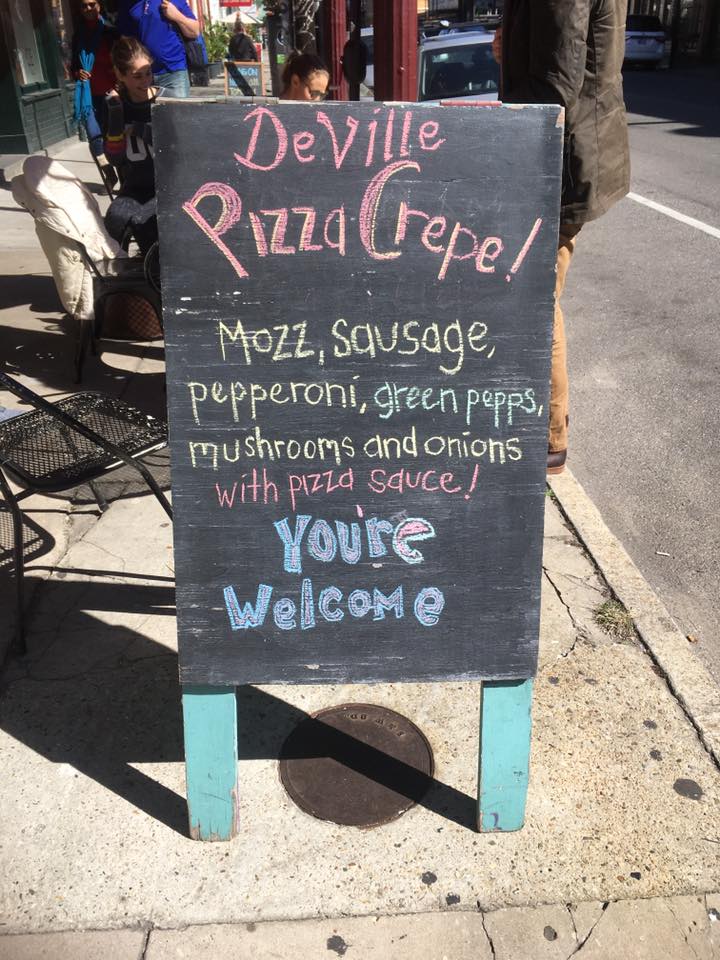 DeVille
Pizza Crepe!
Mozz, sausage,
pepperoni, green pepps,
mushrooms and onions
with pizza sauce!
You're
Welcome